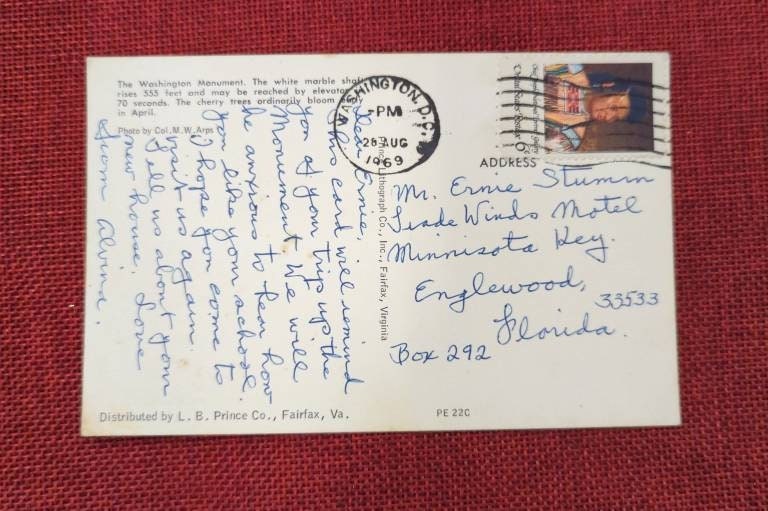 The Washington Monument. The white marble shaft
rises 555 feet and may be reached by elevator
70 seconds. The cherry trees ordinarily bloom
in April.
Photo by Col. M. W. Arps
WASHINGTON, D.C.
-PM
28 AUG
1969
ADDRESS
Dear Ernie,
This card will remind
you of your trip up the
Monument. We will
be anxious to hear how
you like your school.
I hope you come to
visit us again.
Tell us about your
new house. Love
from Alvina.
Prince Lithograph Co., Inc., Fairfax, Virginia
Mr. Ernie Stumm
Trade Winds Motel
Minnisota Key.
Englewood,
33533
Florida.
Box 292
Distributed by L. B. Prince Co., Fairfax, Va.
PE 22C